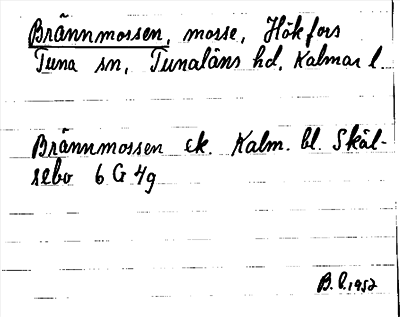 Brännmossen, mosse, Hökfors
Tuna sn, Tunaläns hd, Kalmar l.
Brännmossen ek. Kalm. bl. Skäl-
sebo 6 G 4g
B. L. 1952